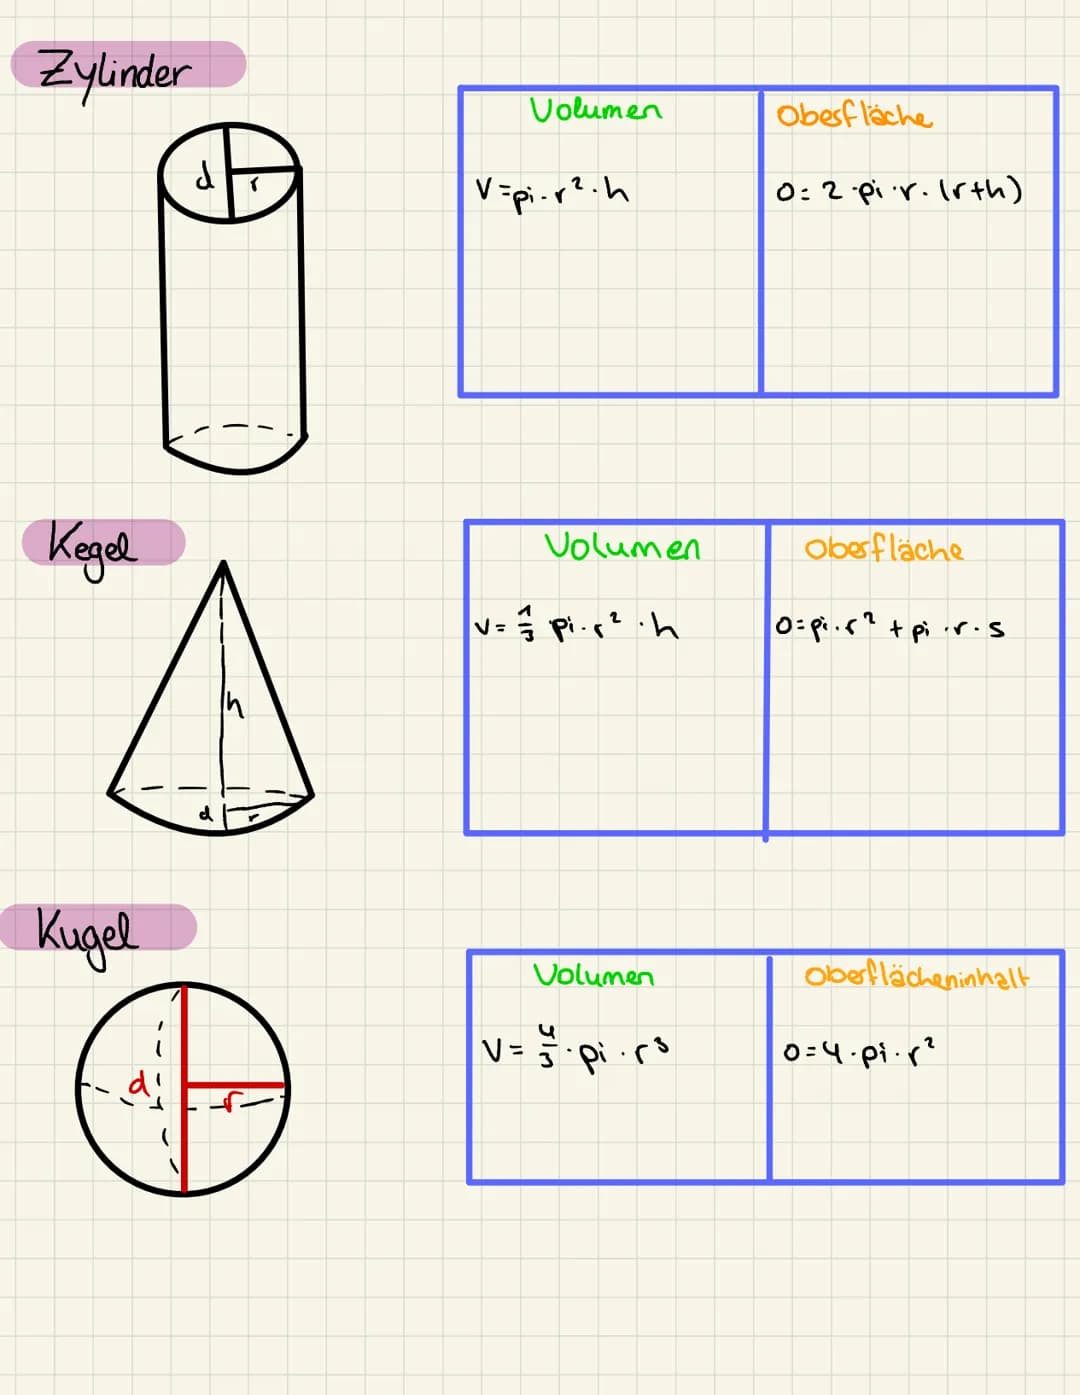 Zylinder
d
r
Volumen
Obesfläche
V=pi·r²·h
O=2·pi·r·(r+h)
Kegel
h
d
r
Volumen
Oberfläche
V=1/3 pi·r²·h
O=pi·r²+pi·r·s
Kugel
d
r
Volumen
Oberflächeninhalt
V=4/3·pi·r³
O=4·pi·r²